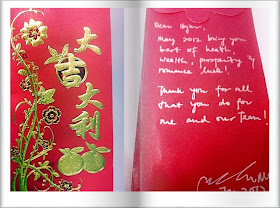 大
吉
大
利
Dear Ryan,
May 2012 bring you
best of health,
wealth, prosperity &
romance luck!
Thank you for all
that you do for
me and our team!